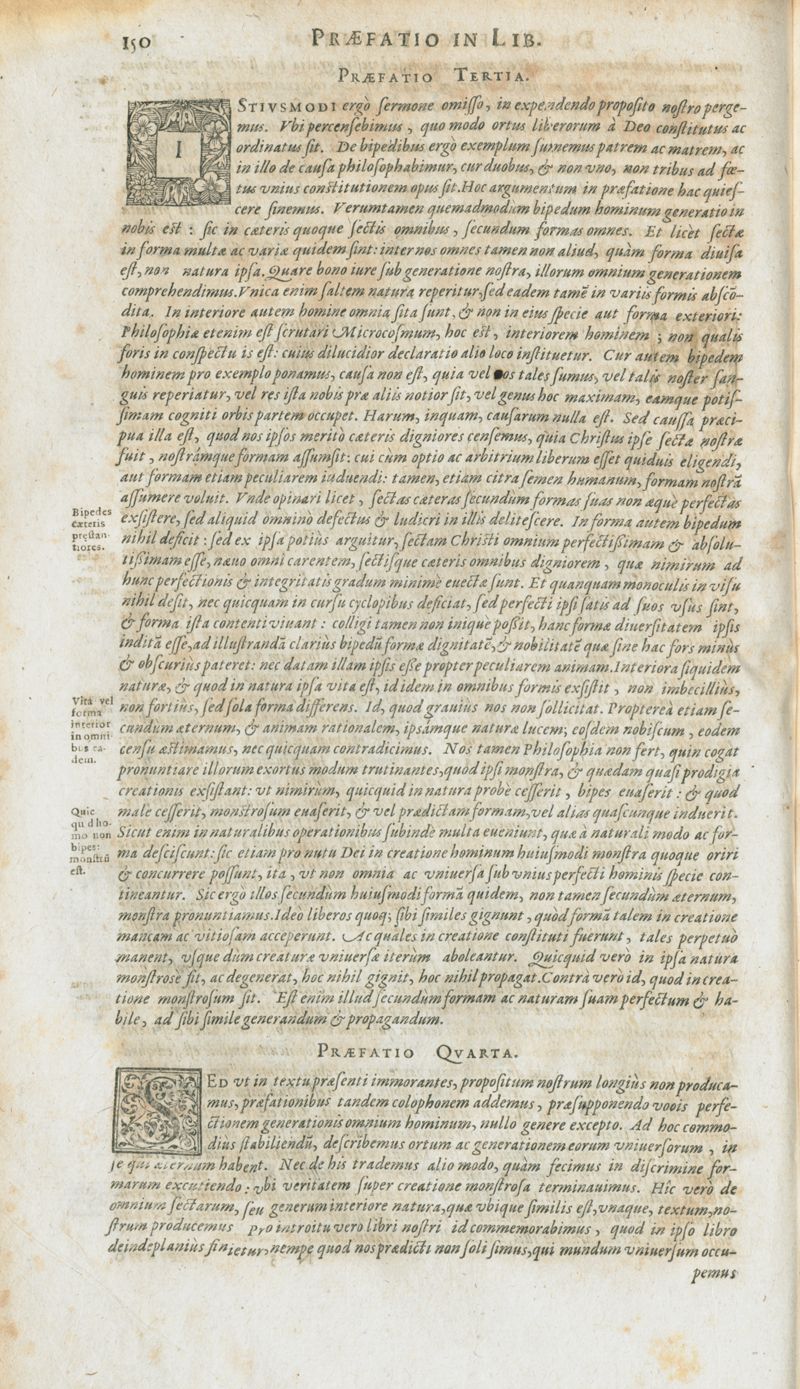 150
PRÆFATIO IN LIB.
PRÆFATIO TERTIA.
ISTIVSMODI ergò sermone omisso, in expendendo proposito nostro perge-
mus. Vbi percensebimus, quo modo ortus liberorum à Deo constitutus ac
ordinatus sit. De bipedibus ergò exemplum sumemus patrem ac matrem, ac
in illo de causa philosophabimur, cur duobus, & non vno, non tribus ad fœ-
tus vnius constitutionem opus sit. Hoc argumentum in præfatione hac quies-
cere sinemus. Verumtamen quemadmodum bipedum hominum generatio in
nobis est : sic in cæteris quoque sectis omnibus, secundum formas omnes. Et licèt sectæ
in forma multæ ac variæ quidem sint: inter nos omnes tamen non aliud, quàm forma diuisa
est, non natura ipsa. Quare bono iure sub generatione nostra, illorum omnium generationem
comprehendimus. Vnica enim saltem natura reperitur, sed eadem tamẽ in variis formis abscõ-
dita. In interiore autem homine omnia sita sunt, & non in eius specie aut forma exteriori:
Philosophiæ etenim est scrutari Microcosmum, hoc est, interiorem hominem ; non qualis
foris in conspectu is est: cuius dilucidior declaratio alio loco instituetur. Cur autem bipedem
hominem pro exemplo ponamus, causa non est, quia vel nos tales sumus, vel talis noster san-
guis reperiatur, vel res ista nobis præ aliis notior sit, vel genus hoc maximam, eamque potis-
simam cogniti orbis partem occupet. Harum, inquam, causarum nulla est. Sed caussa præci-
pua illa est, quod nos ipsos meritò cæteris digniores censemus, quia Christus ipse sectæ nostræ
fuit, nostrámque formam assumsit: cui cùm optio ac arbitrium liberum esset quiduis eligendi,
aut formam etiam peculiarem induendi: tamen, etiam citra semen humanum, formam nostrã
assumere voluit. Vnde opinari licet, sectas cæteras secundum formas suas non æquè perfectas
Bipedes
cæteris
præstan-
tiores.
exsistere, sed aliquid omninò defectus & ludicri in illis delitescere. In forma autem bipedum
nihil deficit : sed ex ipsa potiùs arguitur, sectam Christi omnium perfectißimam & absolu-
tißimam esse, næuo omni carentem, sectisque cæteris omnibus digniorem, quæ nimirum ad
hunc perfectionis & integritatis gradum minimè euectæ sunt. Et quanquam monoculis in visu
nihil desit, nec quicquam in cursu cyclopibus deficiat, sed perfecti ipsi satis ad suos vsus sint,
& forma ista contenti viuant : colligi tamen non inique poßit, hanc formæ diuersitatem ipsis
inditã esse, ad illustrandã clarius bipedũ formæ dignitatẽ, & nobilitatẽ quæ sine hac fors minùs
& obscuriùs pateret: nec datam illam ipsis eße propter peculiarem animam. Interiora siquidem
naturæ, & quod in natura ipsa vita est, id idem in omnibus formis exsistit, non imbecilliùs,
Vita vel
forma
interior
in omni-
bus ea-
dem.
non fortiùs, sed sola forma differens. Id, quod grauiùs nos non sollicitat. Propterea etiam se-
cundum æternum, & animam rationalem, ipsámque naturæ lucem; eosdem nobiscum, eodem
censu æstimamus, nec quicquam contradicimus. Nos tamen Philosophia non fert, quin cogat
pronuntiare illorum exortus modum trutinantes, quòd ipsi monstra, & quædam quasi prodigia
creationis exsistant: vt nimirùm, quicquid in natura probè cesserit, bipes euaserit : & quod
Quic
quid ho-
mo non
bipes:
monstrũ
est.
malè cesserit, monstrosum euaserit, & vel prædictam formam, vel alias quascunque induerit.
Sicut enim in naturalibus operationibus subinde multa eueniunt, quæ à naturali modo ac for-
ma desciscunt: sic etiam pro nutu Dei in creatione hominum huiusmodi monstra quoque oriri
& concurrere possunt, ita, vt non omnia ac vniuersa sub vnius perfecti hominis specie con-
tineantur. Sic ergò illos secundùm huiusmodi formã quidem, non tamen secundùm æternum,
monstra pronuntiamus. Ideò liberos quoq; sibi similes gignunt, quòd formã talem in creatione
mancam ac vitiosam acceperunt. Ac quales in creatione constituti fuerunt, tales perpetuò
manent, vsque dum creaturæ vniuersæ iterùm aboleantur. Quicquid verò in ipsa natura
monstrosè fit, ac degenerat, hoc nihil gignit, hoc nihil propagat. Contrà verò id, quod in crea-
tione monstrosum fit. Est enim illud secundum formam ac naturam suam perfectum & ha-
bile, ad sibi simile generandum & propagandum.
PRÆFATIO QVARTA.
SED vt in textu præsenti immorantes, propositum nostrum longiùs non produca-
mus, præfationibus tandem colophonem addemus, præsupponendo vobis perfe-
ctionem generationis omnium hominum, nullo genere excepto. Ad hoc commo-
diùs stabiliendũ, describemus ortum ac generationem eorum vniuersorum, in
se qui æternum habent. Nec de his trademus alio modo, quàm fecimus in discrimine for-
marum excutiendo : vbi veritatem super creatione monstrosa terminauimus. Hic verò de
omnium sectarum, seu generum interiore natura, quæ vbique similis est, vnaque, textum, no-
strum producemus pro introitu vero libri nostri id commemorabimus, quod in ipso libro
deinde planius finietur, nempe quod nos prædicti non soli simus, qui mundum vniuersum occu-
pemus